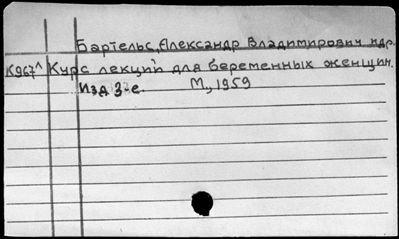 Бартельс, Александр Владимирович и др.
К967^Л Курс лекций для беременных женщин.
Изд 3-е. М., 1959